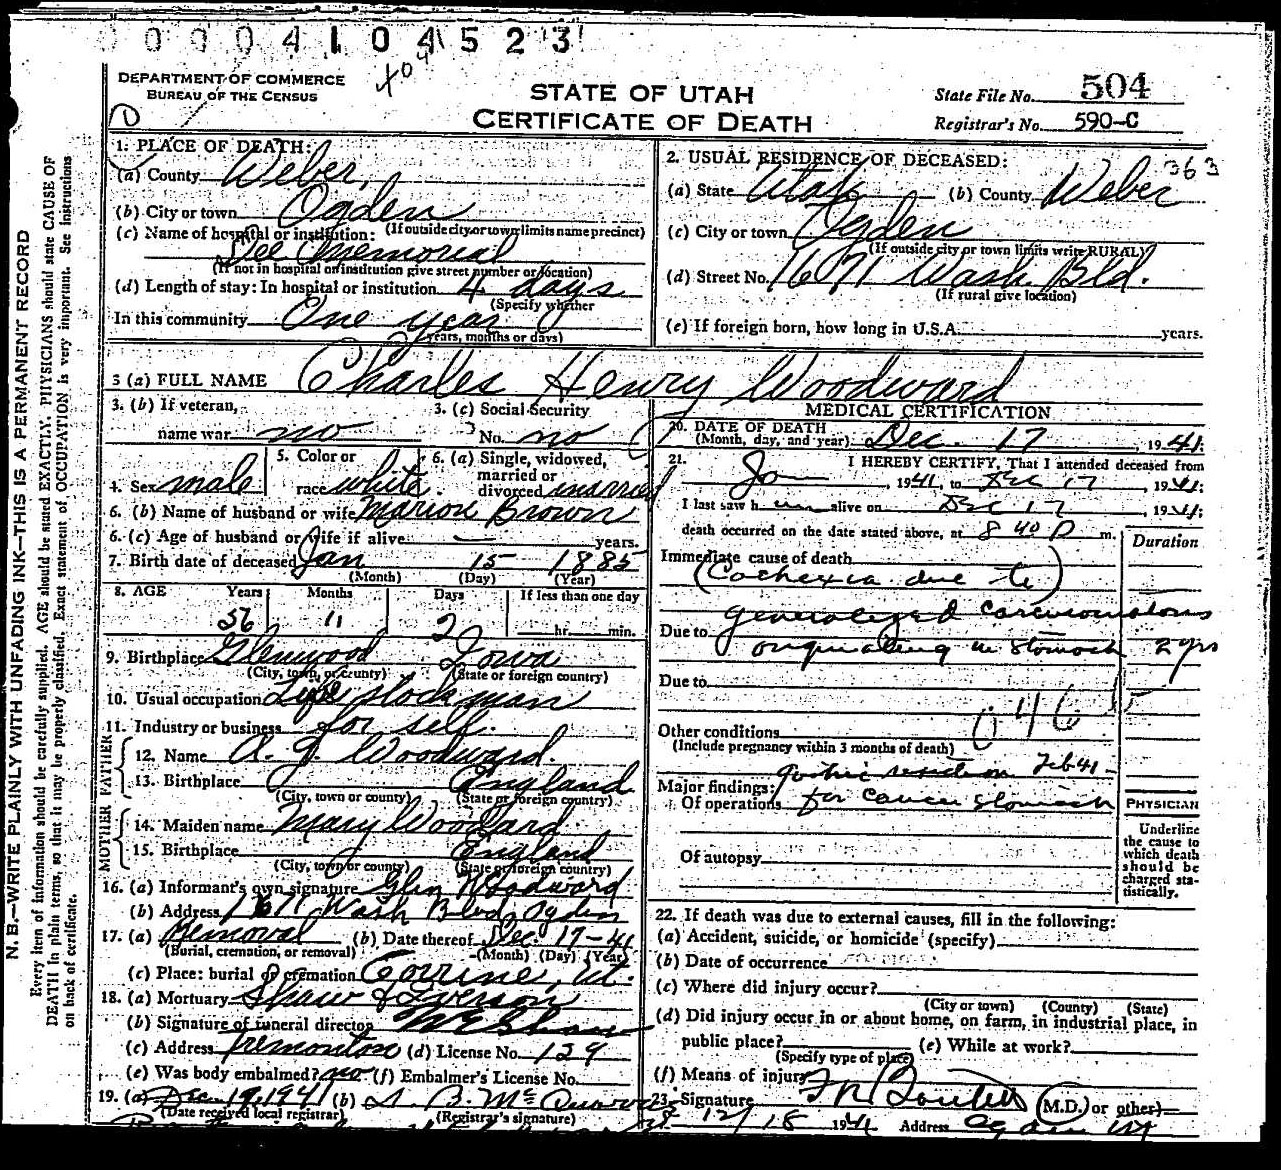 0 0 0 4 1 0 4 5 2 3
DEPARTMENT OF COMMERCE
BUREAU OF THE CENSUS
STATE OF UTAH
CERTIFICATE OF DEATH
State File No. 504
Registrar's No. 590-C
1. PLACE OF DEATH:
(a) County Weber,
(b) City or town Ogden
(If outside city or town limits name precinct)
(c) Name of hospital or institution:
Dee Memorial
(If not in hospital or institution give street number or location)
(d) Length of stay: In hospital or institution 4 days
(Specify whether
In this community One year
years, months or days)
2. USUAL RESIDENCE OF DECEASED: 363
(a) State Utah (b) County Weber
(c) City or town Ogden
(If outside city or town limits write RURAL)
(d) Street No. 1671 Wash. Bld.
(If rural give location)
(e) If foreign born, how long in U.S.A. years.
3 (a) FULL NAME Charles Henry Woodward
3. (b) If veteran,
name war no
3. (c) Social Security
No. no
4. Sex male
5. Color or
race white.
6. (a) Single, widowed,
married or
divorced married
6. (b) Name of husband or wife Marion Brown
6. (c) Age of husband or wife if alive — years.
7. Birth date of deceased Jan 15 1885
(Month) (Day) (Year)
8. AGE Years Months Days If less than one day
56 11 2 hr. min.
9. Birthplace Glenwood Iowa
(City, town, or county) (State or foreign country)
10. Usual occupation stockman
11. Industry or business for self.
FATHER
12. Name A. J. Woodward.
13. Birthplace England
(City, town or county) (State or foreign country)
MOTHER
14. Maiden name Mary Woodard
15. Birthplace England
(City, town or county) (State or foreign country)
16. (a) Informant's own signature Glen Woodward
(b) Address 1671 Wash Blvd, Ogden
17. (a) Removal (b) Date thereof Dec. 17-41
(Burial, cremation, or removal) (Month) (Day) (Year)
(c) Place: burial or cremation Corrine, Ut.
18. (a) Mortuary Shaw & Iverson
(b) Signature of funeral director W E Shaw
(c) Address Tremonton (d) License No. 129
(e) Was body embalmed? no (f) Embalmer's License No.
19. (a) Dec. 19, 1941 (b)
(Date received local registrar) (Registrar's signature)
MEDICAL CERTIFICATION
20. DATE OF DEATH
(Month, day, and year) Dec. 17, 1941.
21. I HEREBY CERTIFY, That I attended deceased from
Jan, 1941, to Dec 17, 1941;
I last saw him alive on Dec 17, 1941;
death occurred on the date stated above, at 8 40 P m.
Duration
Immediate cause of death
(Cachexia due to)
Due to generalized carcinomatous
originating in stomach 2 yrs
Due to
Other conditions
(Include pregnancy within 3 months of death)
Major findings: gastric resection Feb 41-
Of operations for cancer stomach
Of autopsy
PHYSICIAN
Underline
the cause to
which death
should be
charged sta-
tistically.
22. If death was due to external causes, fill in the following:
(a) Accident, suicide, or homicide (specify)
(b) Date of occurrence
(c) Where did injury occur?
(City or town) (County) (State)
(d) Did injury occur in or about home, on farm, in industrial place, in
public place? (e) While at work?
(Specify type of place)
(f) Means of injury
23. Signature (M.D.) or other)
12/18 1941 Address Ogden Ut
N. B.—WRITE PLAINLY WITH UNFADING INK—THIS IS A PERMANENT RECORD
Every item of information should be carefully supplied. AGE should be stated EXACTLY. PHYSICIANS should state CAUSE OF
DEATH in plain terms, so that it may be properly classified. Exact statement of OCCUPATION is very important. See instructions
on back of certificate.